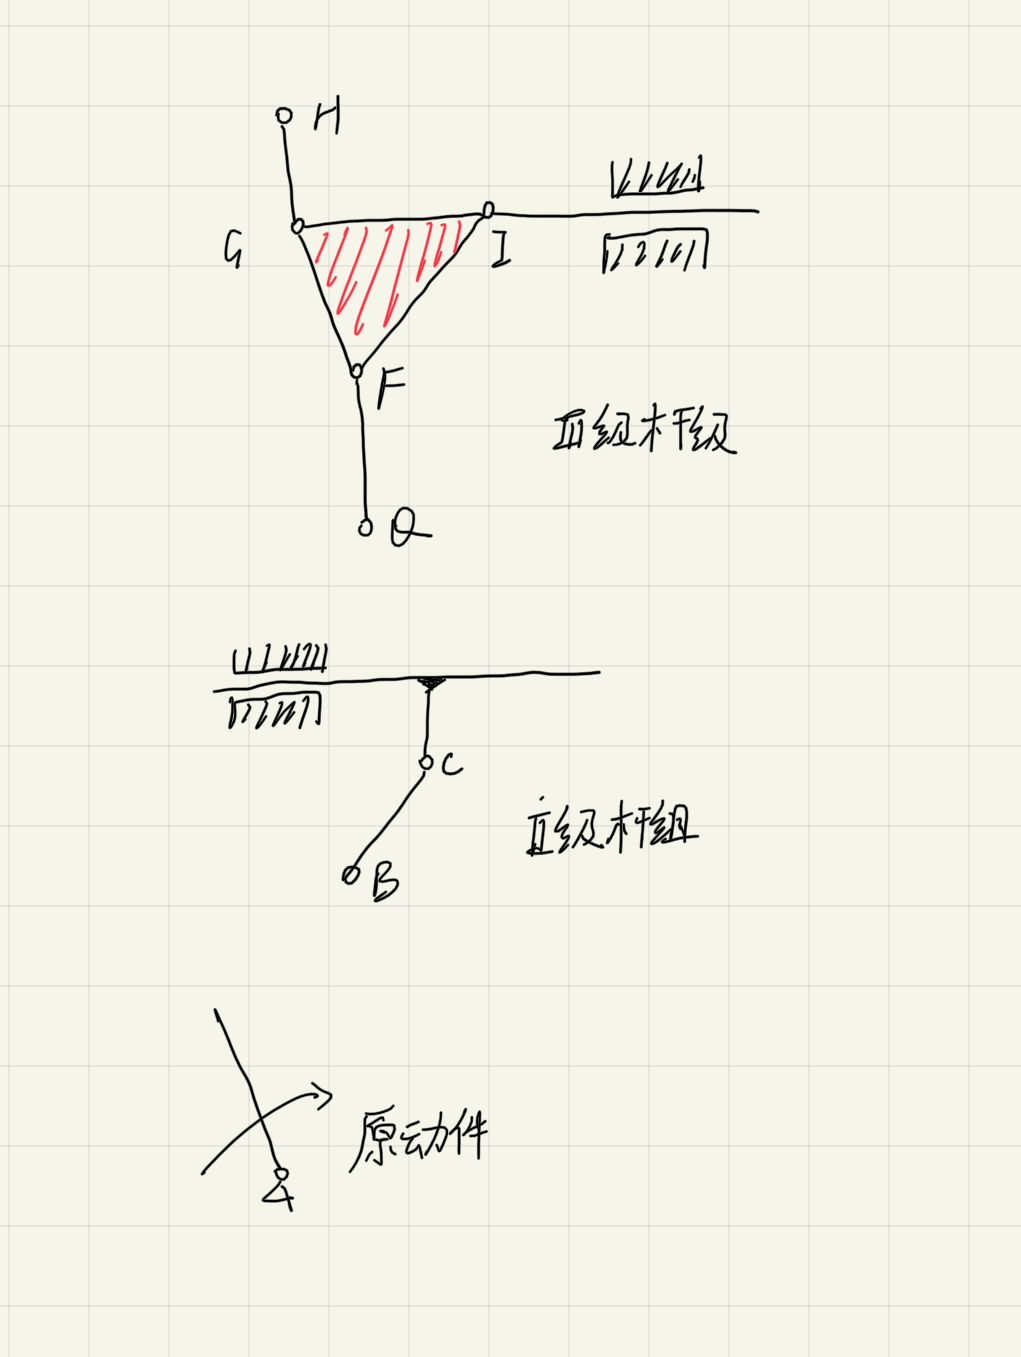 H
G
I
F
Ⅲ级杆级
Q
C
Ⅱ级杆组
B
原动件
A